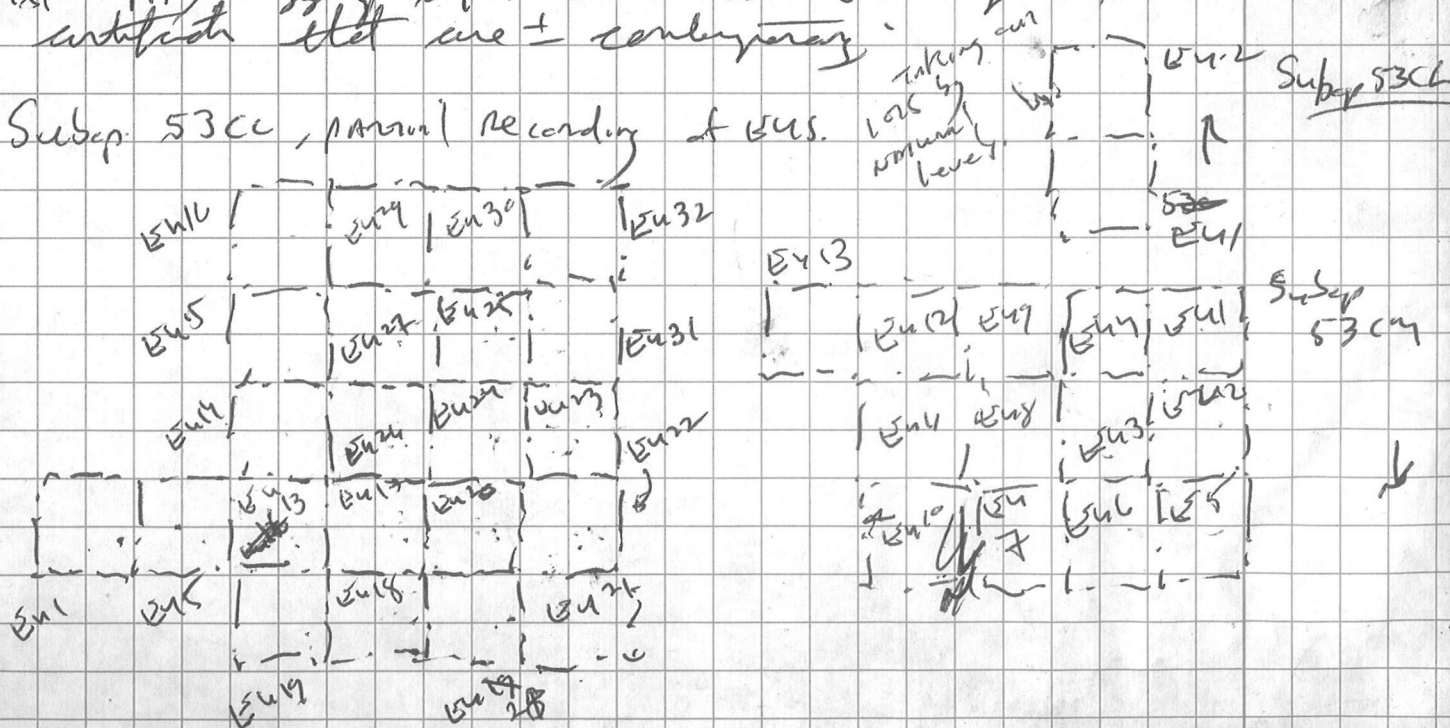 that are ± contemporary.
Subop. 53CC, partial Recording of EUS.
Taking out
lots by
natural
levels.
Eu.2
Subop 53CL
Eu1
Eu16
Eu29
Eu30
Eu32
Eu.5
Eu27
Eu25
Eu31
Eu14
Eu24
Eu23
Eu22
Eu13
Eu20
Eu1
Eu5
Eu18
Eu21
Eu19
28
Eu13
Eu12
Eu9
Eu4
Eu1
Subop
53CM
Eu11
Eu8
Eu3
Eu2
Eu10
Eu
7
Eu6
E5